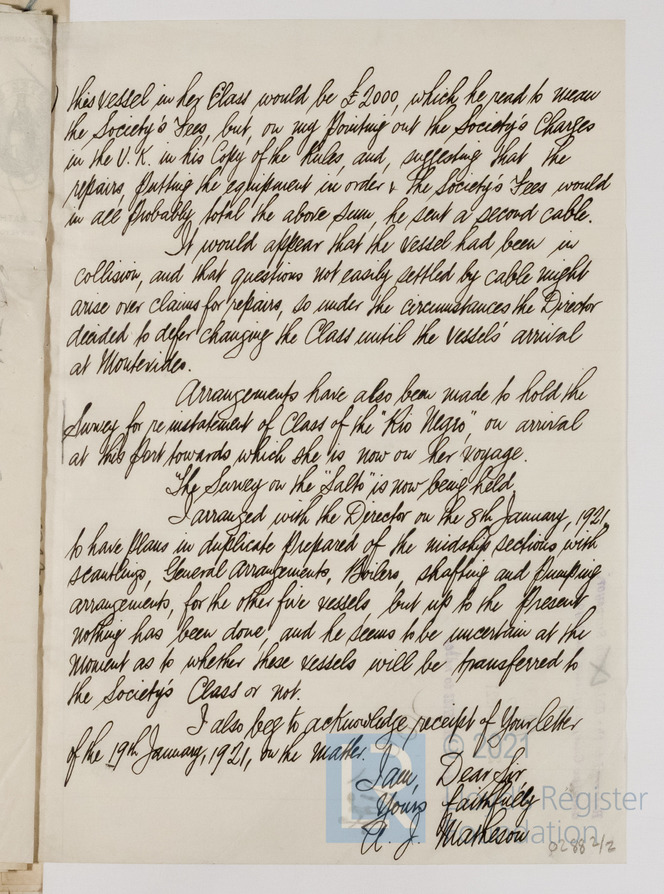 this vessel in her Class would be £2000, which he read to mean
the Society's Fees, but, on my pointing out the Society's Charges
in the U.K. in his Copy of the Rules, and, suggesting that the
repairs, putting the equipment in order & the Society's Fees would
in all probably total the above sum, he sent a second cable.
It would appear that the vessel had been in
collision, and that questions not easily settled by cable might
arise over claims for repairs, so under the circumstances the Director
decided to defer changing the Class until the vessels' arrival
at Montevideo.
Arrangements have also been made to hold the
Survey for re instatement of Class of the "Rio Negro", on arrival
at this port towards which she is now on her voyage.
The Survey on the "Salto" is now being held.
I arranged with the Director on the 8th January, 1921,
to have plans in duplicate prepared of the midship sections with
scantlings, General Arrangements, Boilers, shafting and pumping
arrangements, for the other five vessels, but up to the present
nothing has been done, and he seems to be uncertain at the
moment as to whether these vessels will be transferred to
the Society's Class or not.
I also beg to acknowledge receipt of Your letter
of the 19th January, 1921, on the matter.
I am, Dear Sir,
Yours faithfully
A. J. Matheson
© 2021
Lloyd's Register
Foundation
0288 2/2